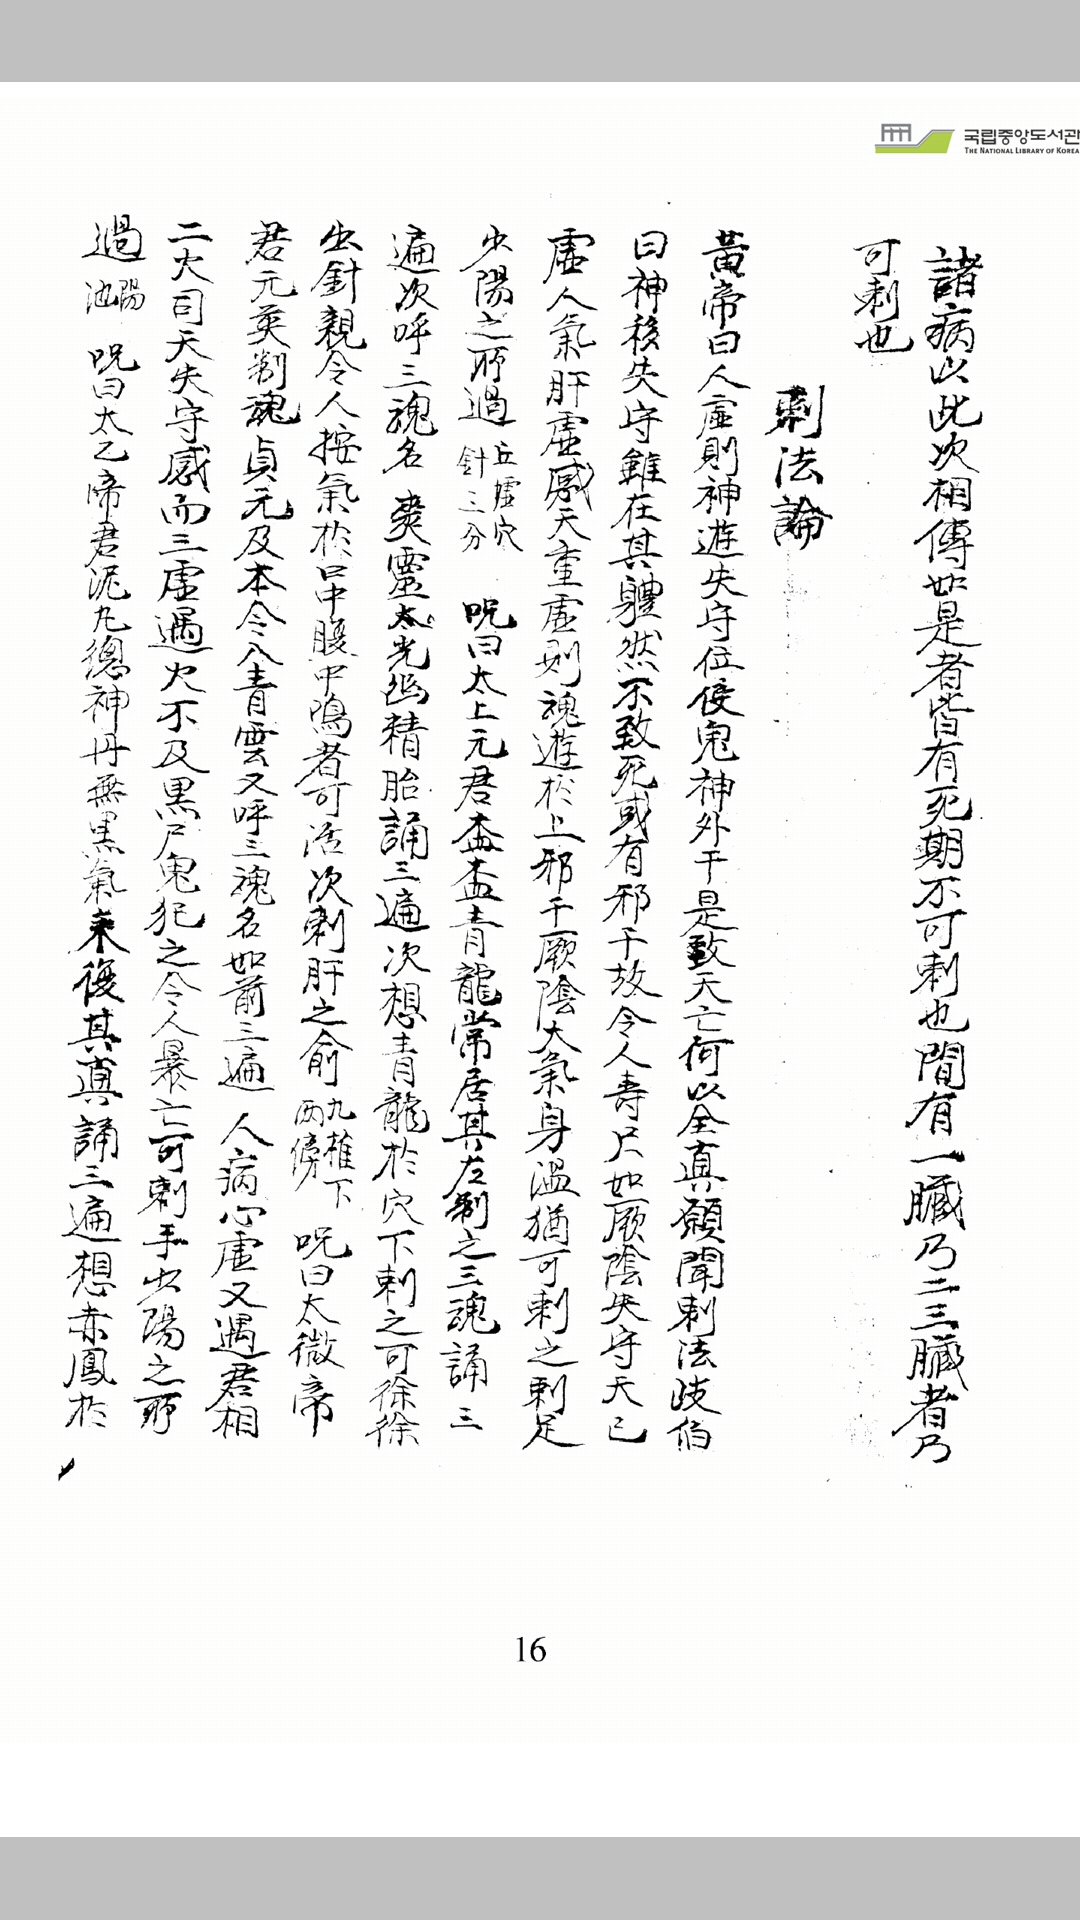 국립중앙도서관
THE NATIONAL LIBRARY OF KOREA
諸病以此次相傳如是者皆有死期不可刺也間有一臟乃二三臟者乃
可刺也
刺法論
黃帝曰人虛則神遊失守位使鬼神外干是致夭亡何以全真願聞刺法岐伯
曰神移失守雖在其體然不致死或有邪干故令人壽只如厥陰失守天已
虛人氣肝虛感天重虛則魂遊於上邪干厥陰大氣身溫猶可刺之刺足
少陽之所過 丘墟穴針三分 呪曰太上元君盃盃青龍常居其左制之三魂誦三
遍次呼三魂名 爽靈太光幽精胎誦三遍次想青龍於穴下刺之可徐徐
出針親令人按氣於口中腹中鳴者可活次刺肝之俞 九椎下兩傍 呪曰太微帝
君元英制魂貞元及本令入青雲又呼三魂名如前三遍 人病心虛又遇君相
二火司天失守感而三虛遇火不及黑尸鬼犯之令人暴亡可刺手少陽之所
過 陽池 呪曰太乙帝君泥丸總神丹無黑氣来復其眞誦三遍想赤鳳於
16